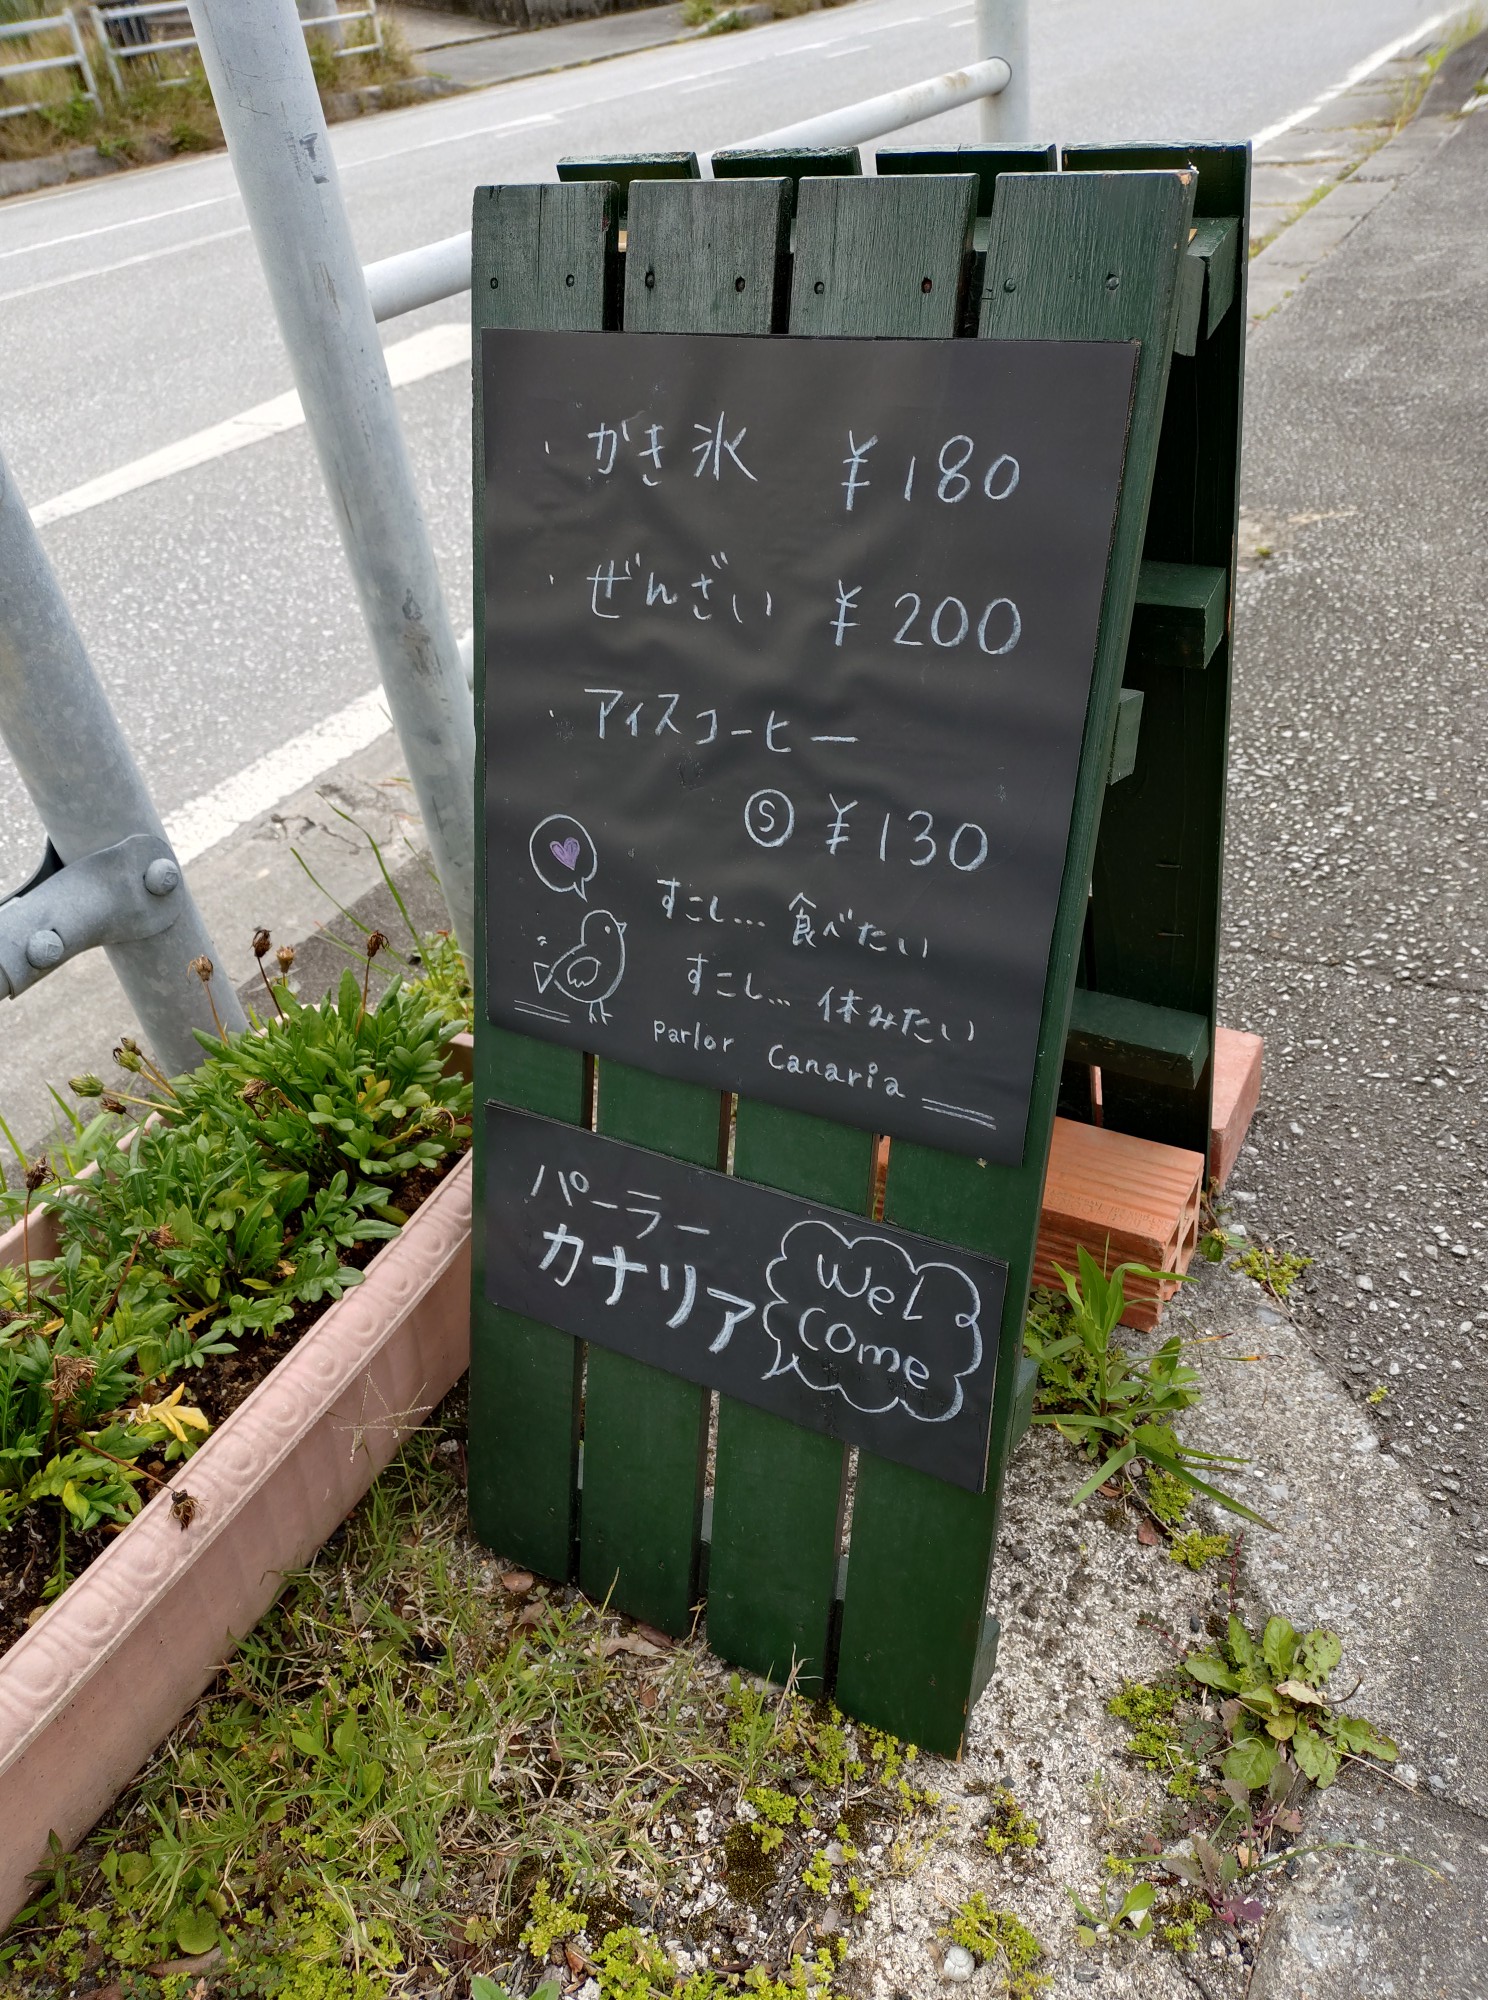 ・かき氷 ¥180
・ぜんざい ¥200
・アイスコーヒー
Ⓢ ¥130
すこし... 食べたい
すこし... 休みたい
Parlor Canaria
パーラー
カナリア
WeL
Come